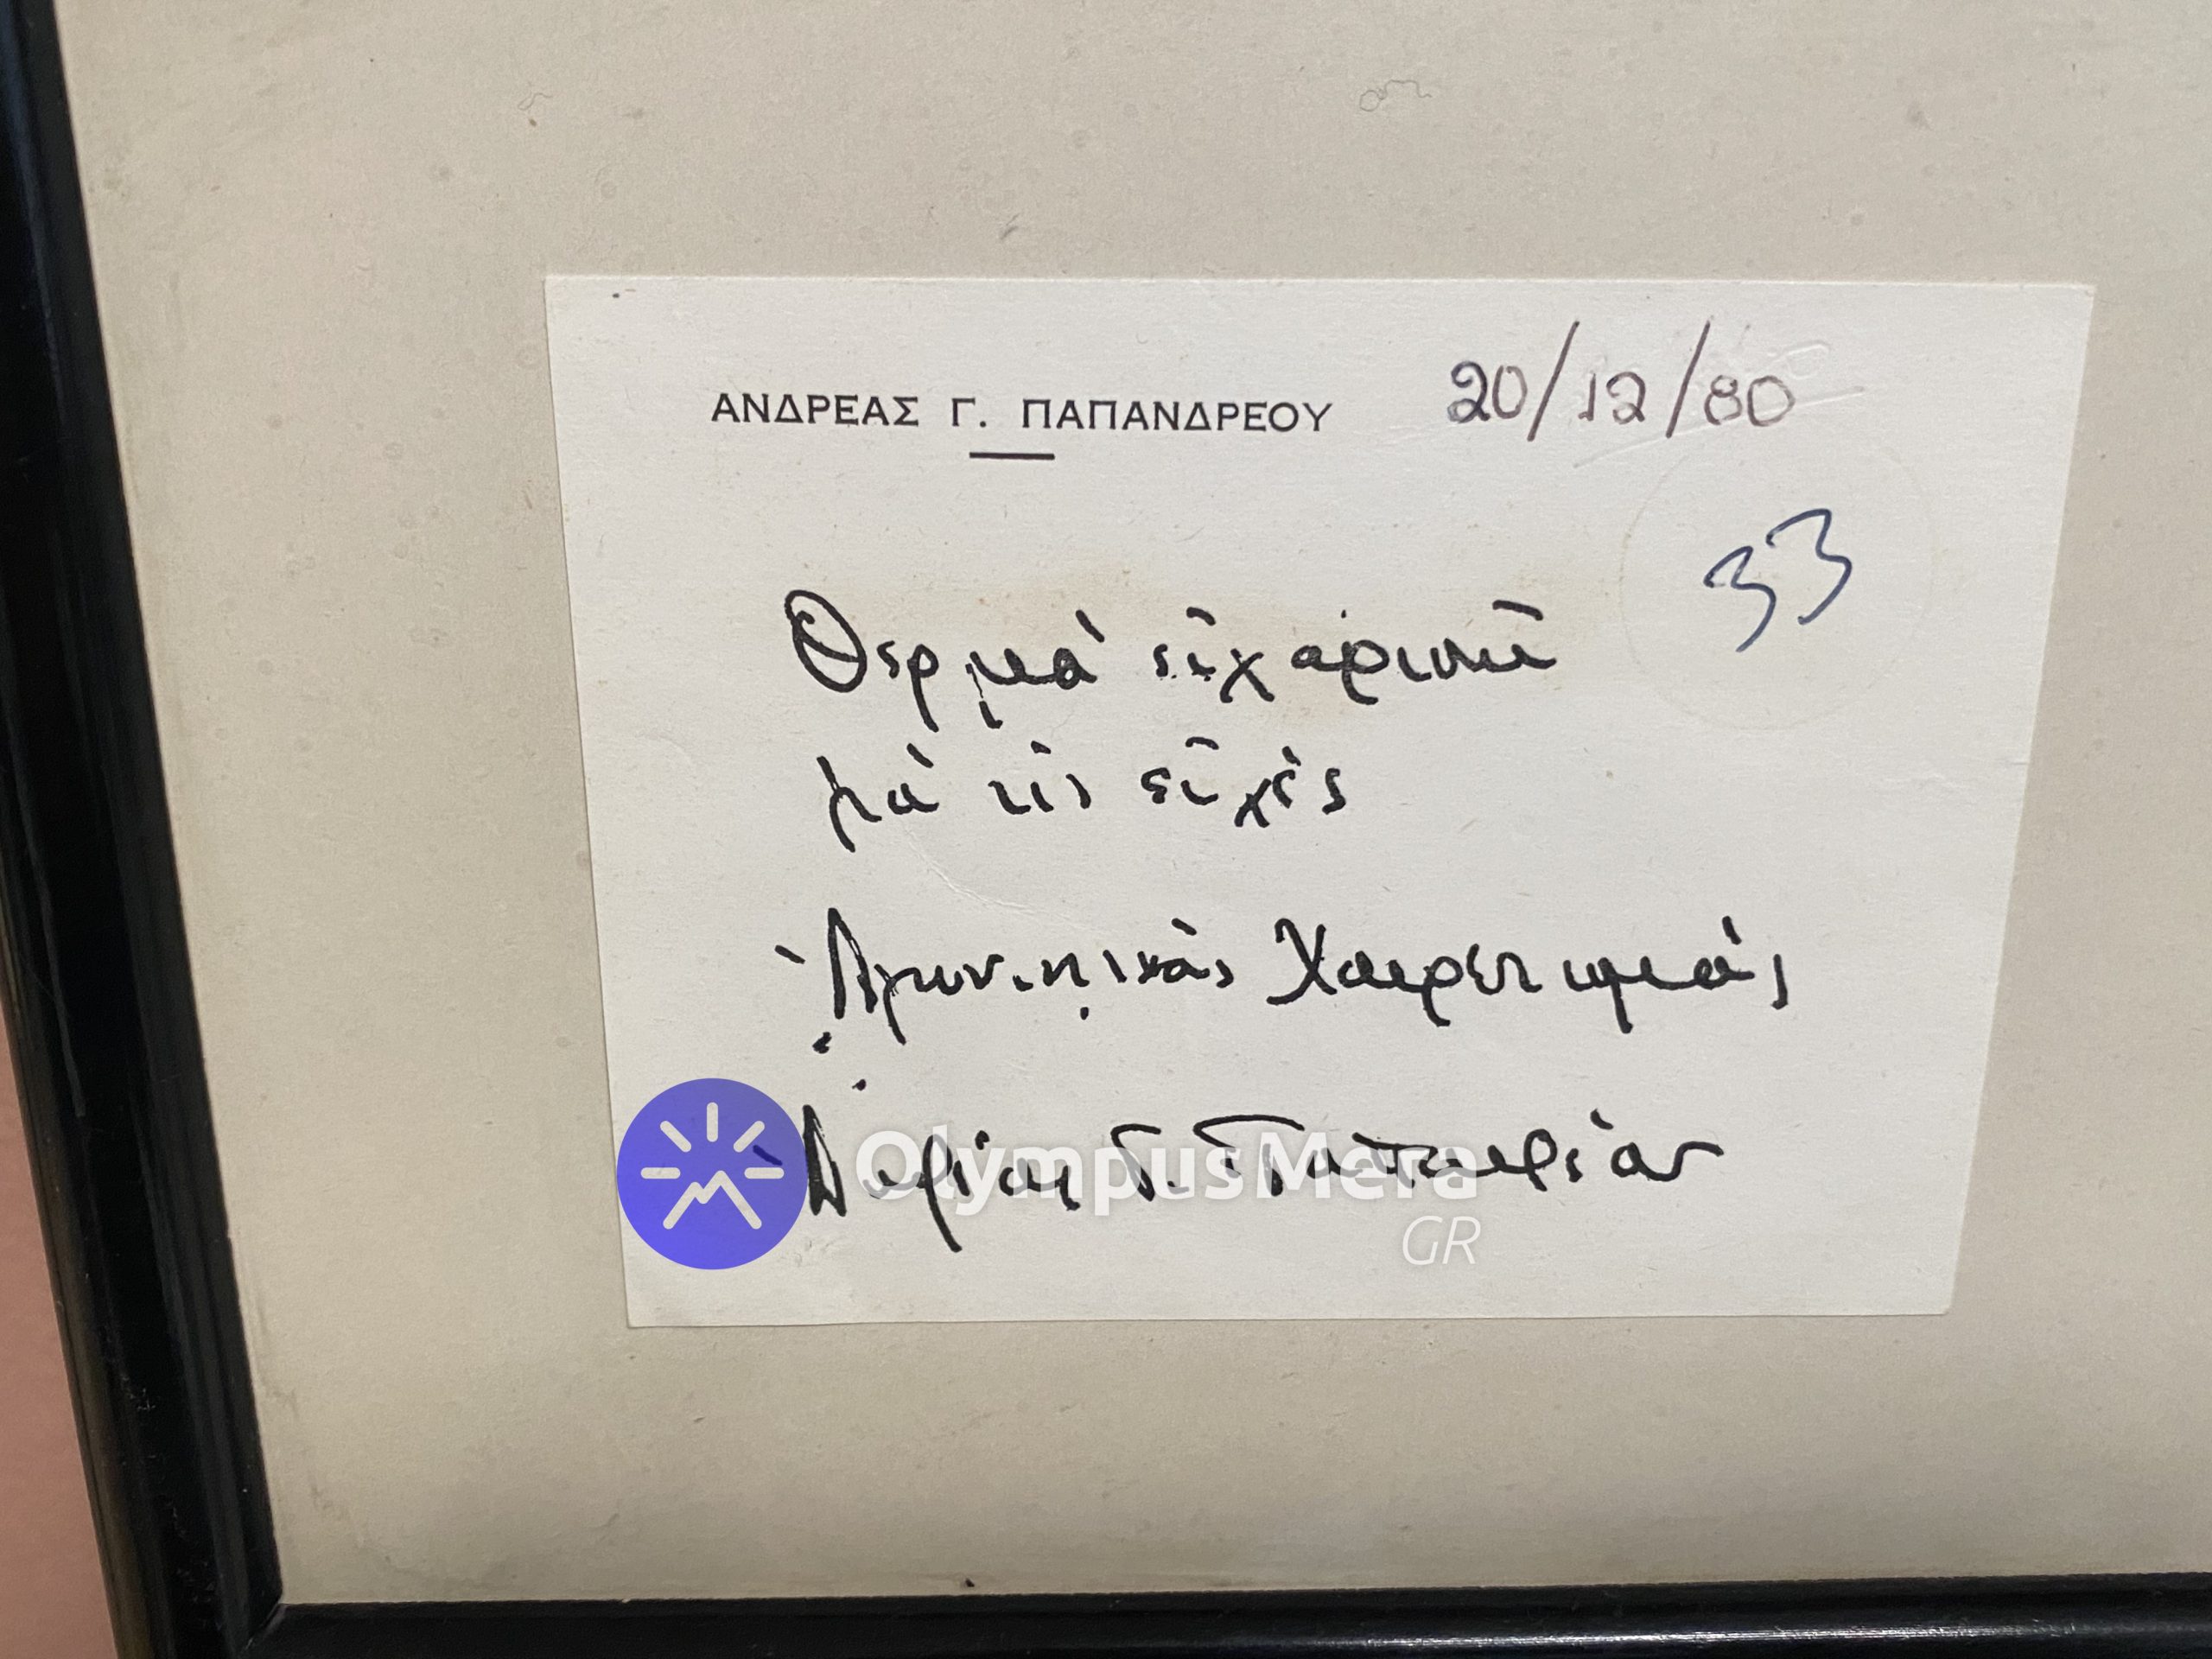 ΑΝΔΡΕΑΣ Γ. ΠΑΠΑΝΔΡΕΟΥ 20/12/80
33
Θερμά εὐχαριστῶ
γιά τίς εὐχές
Ἀγωνιστικούς Χαιρετισμούς
Ἀνδρέας Γ. Παπανδρέου
OlympusMera
GR